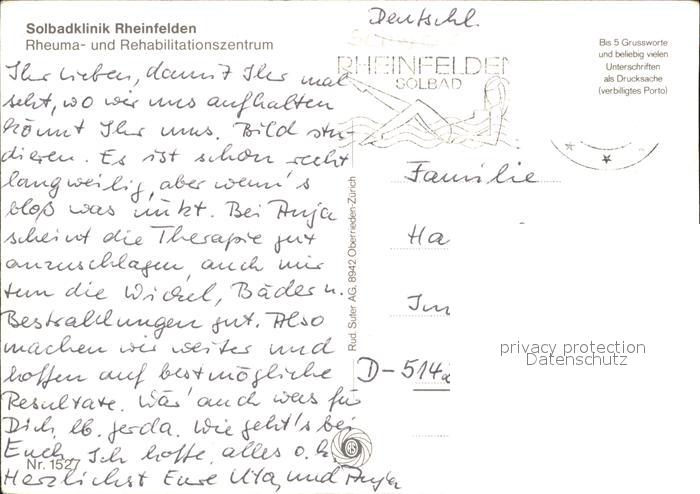 Solbadklinik Rheinfelden
Rheuma- und Rehabilitationszentrum
Ihr Lieben, damit Ihr mal
seht, wo wir uns aufhalten
könnt Ihr uns. Bild stu-
dieren. Es ist schon recht
langweilig, aber wenn's
bloß was nützt. Bei Anja
scheint die Therapie gut
anzuschlagen, auch mir
tun die Wickel, Bäder u.
Bestrahlungen gut. Also
machen wir weiter und
hoffen auf bestmögliche
Resultate. Wär' auch was für
Dich, lb. Gerda. Wie geht's bei
Euch, Ich hoffe, alles o.k.
Herzlichst Eure Uta, und Anja
Nr. 1527
Rud. Suter AG, 8942 Oberrieden-Zürich
Deutschl.
RHEINFELDEN
SOLBAD
Bis 5 Grussworte
und beliebig vielen
Unterschriften
als Drucksache
(verbilligtes Porto)
Familie
Ha
Im
D-514
privacy protection
Datenschutz